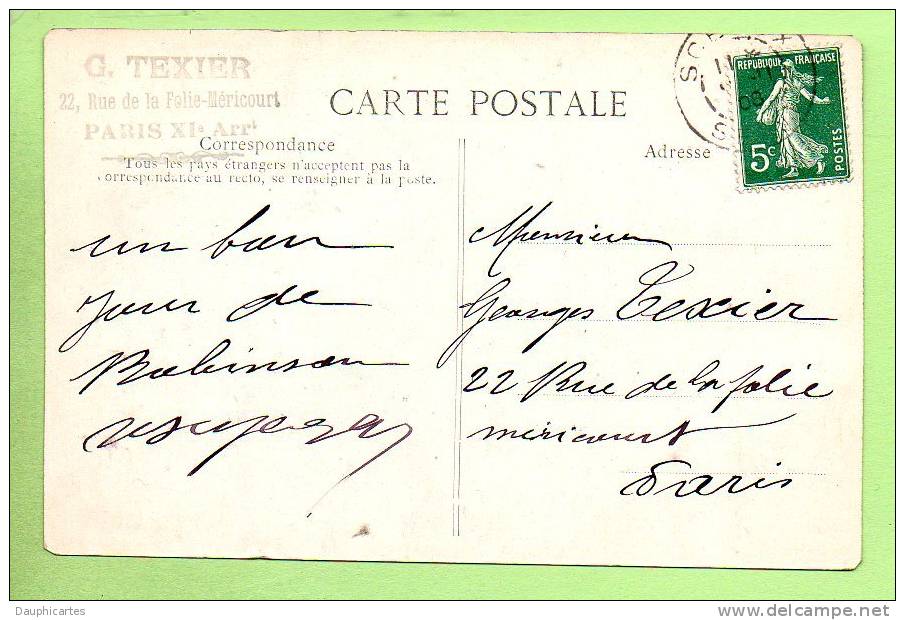 G. TEXIER
22, Rue de la Folie-Méricourt
PARIS XIe Arrt
CARTE POSTALE
Correspondance
Tous les pays étrangers n'acceptent pas la
correspondance au recto, se renseigner à la poste.
Adresse
REPUBLIQUE FRANÇAISE
5c
POSTES
un bon
jour de
Robinson
Monsieur
Georges Texier
22 Rue de la folie
méricourt
Paris
Dauphicartes
www.delcampe.net